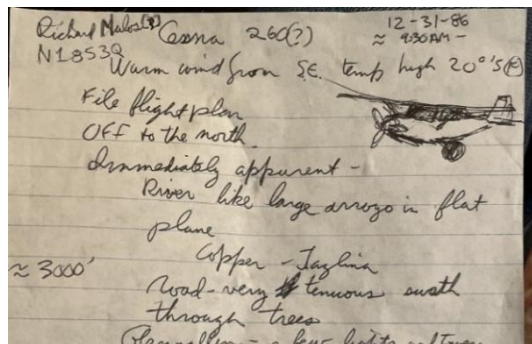 Richard Malos(?) Cessna 260(?)
12-31-86
≈ 9:30 AM -
N1853Q
Warm wind from S.E. temp high 20°'s F
File flight plan
Off to the north.
Immediately apparent -
River like large arroyo in flat
plane
Copper - Tazlina
≈ 3000'
Road - very tenuous swath
through trees
a few lights